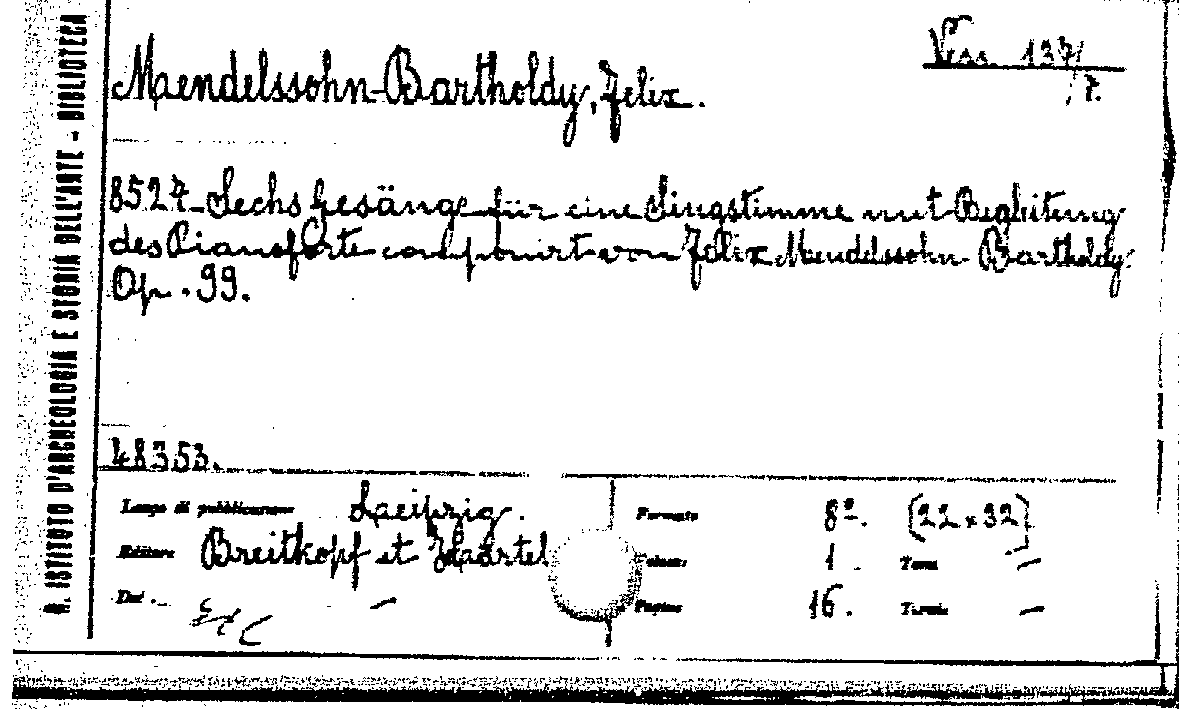 R. ISTITUTO D'ARCHEOLOGIA E STORIA DELL'ARTE - BIBLIOTECA
Vess. 137/7.
Mendelssohn-Bartholdy, Felix.
8527-Sechs Gesänge für eine Singstimme mit Begleitung
des Pianoforte componirt von Felix Mendelssohn-Bartholdy.
Op. 99.
48353.
Luogo di pubblicazione Laeipzig. Formato 8º. (22x32)
Editore Breitkopf et Haartel Volumi 1. Tomi —
Data — Pagine 16. Tavole —